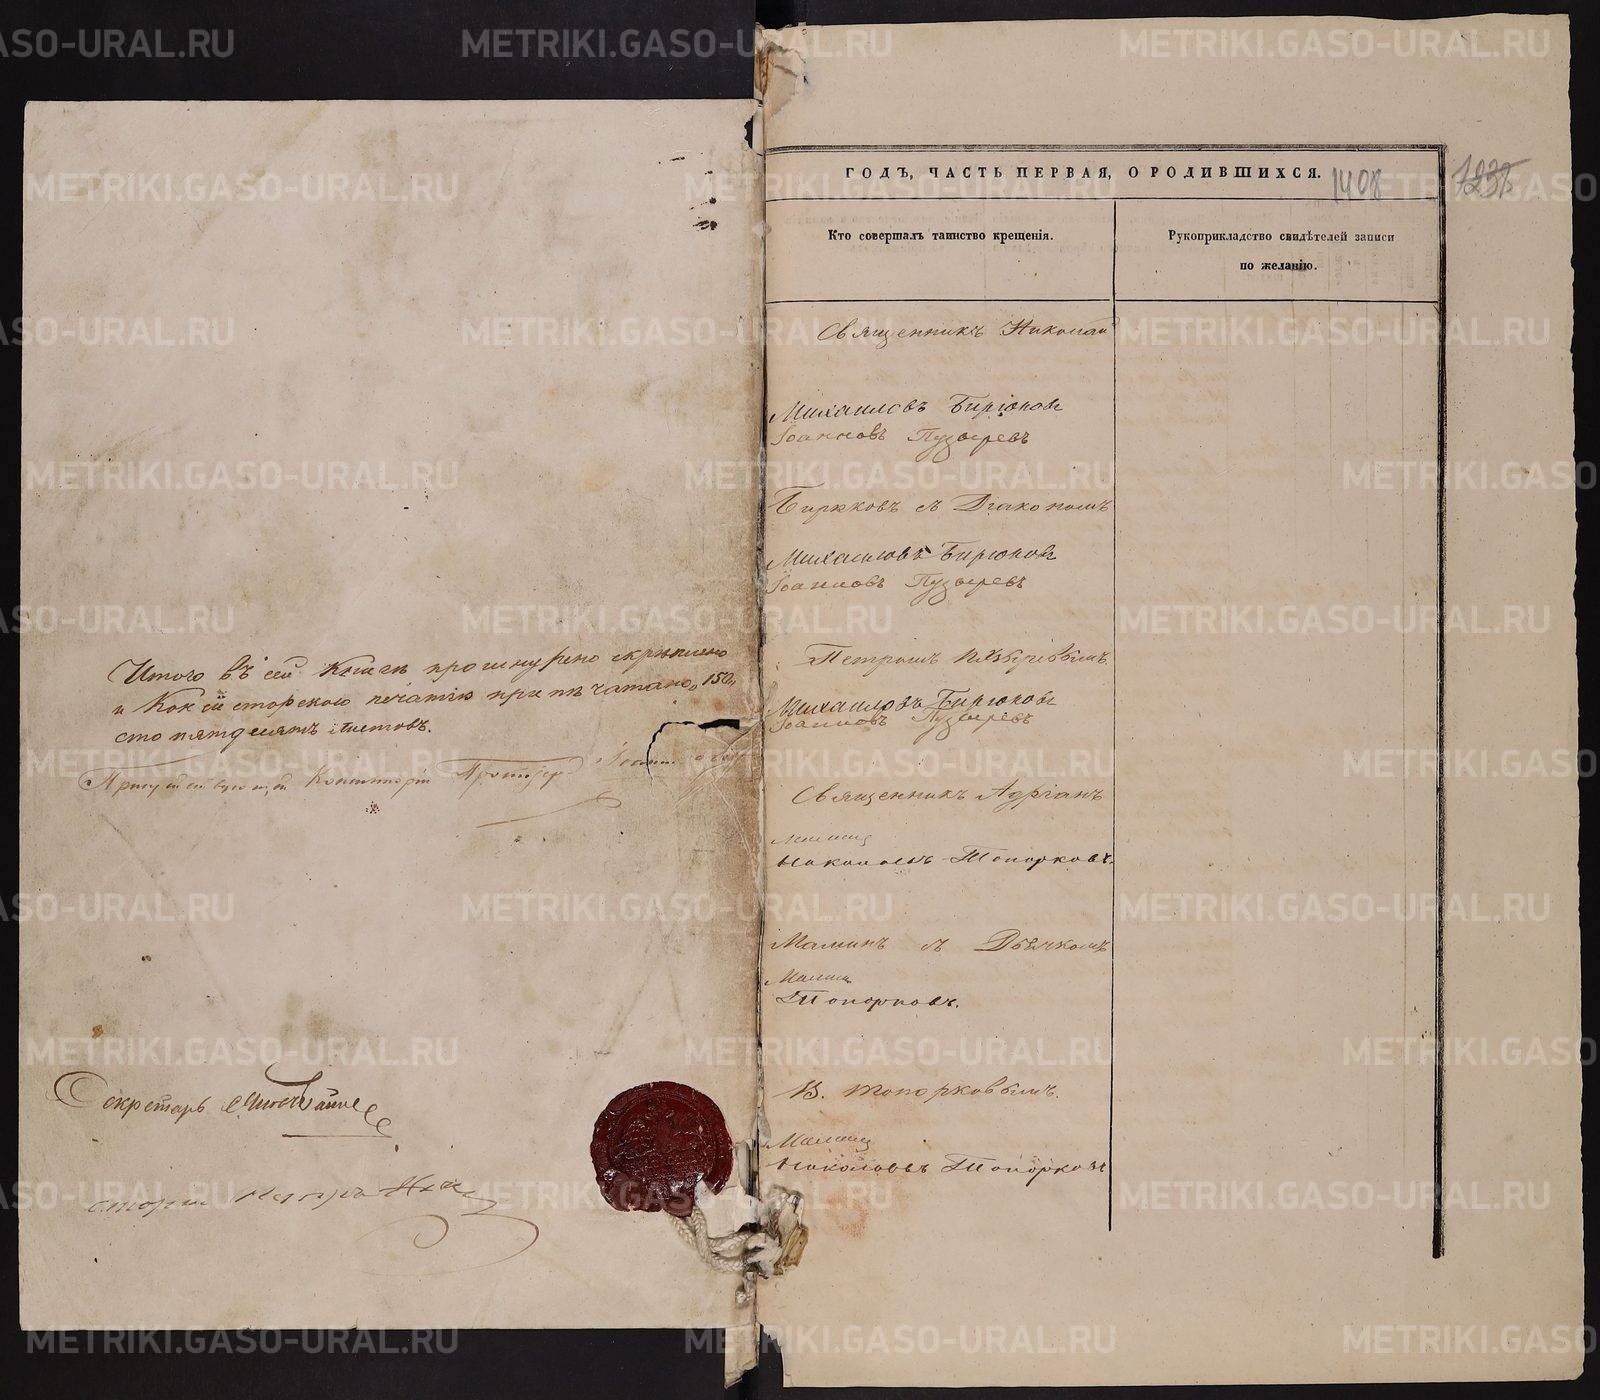 Итого въ сей книгѣ прошнурено скрѣплено
и Консисторскою печатію припѣчатано „150„
сто пятдесятъ листовъ.
Присутствующій Консисторіи Протоіер
Секретарь
ГОДЪ, ЧАСТЬ ПЕРВАЯ, О РОДИВШИХСЯ.
1408
1235
Кто совершалъ таинство крещенія.
Рукоприкладство свидѣтелей записи
по желанію.
Священникъ Николай
Михаиловъ Бирюков
Іоанновъ Пузыревъ
Бирюковъ съ Діакономъ
Михаиловъ Бирюков
Іоанновъ Пузыревъ
Петромъ
Михаиловъ Бирюков
Іоанновъ Пузыревъ
Священникъ Адріанъ
Мамин
Топорковъ.
Маминъ съ Дьячкомъ
Мамин
Топорковъ.
В. Топорковымъ.
Мамин
Топорков
METRIKI.GASO-URAL.RU